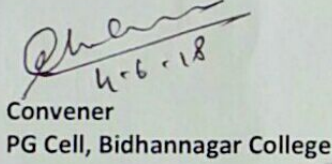 4-6-18
Convener
PG Cell, Bidhannagar College